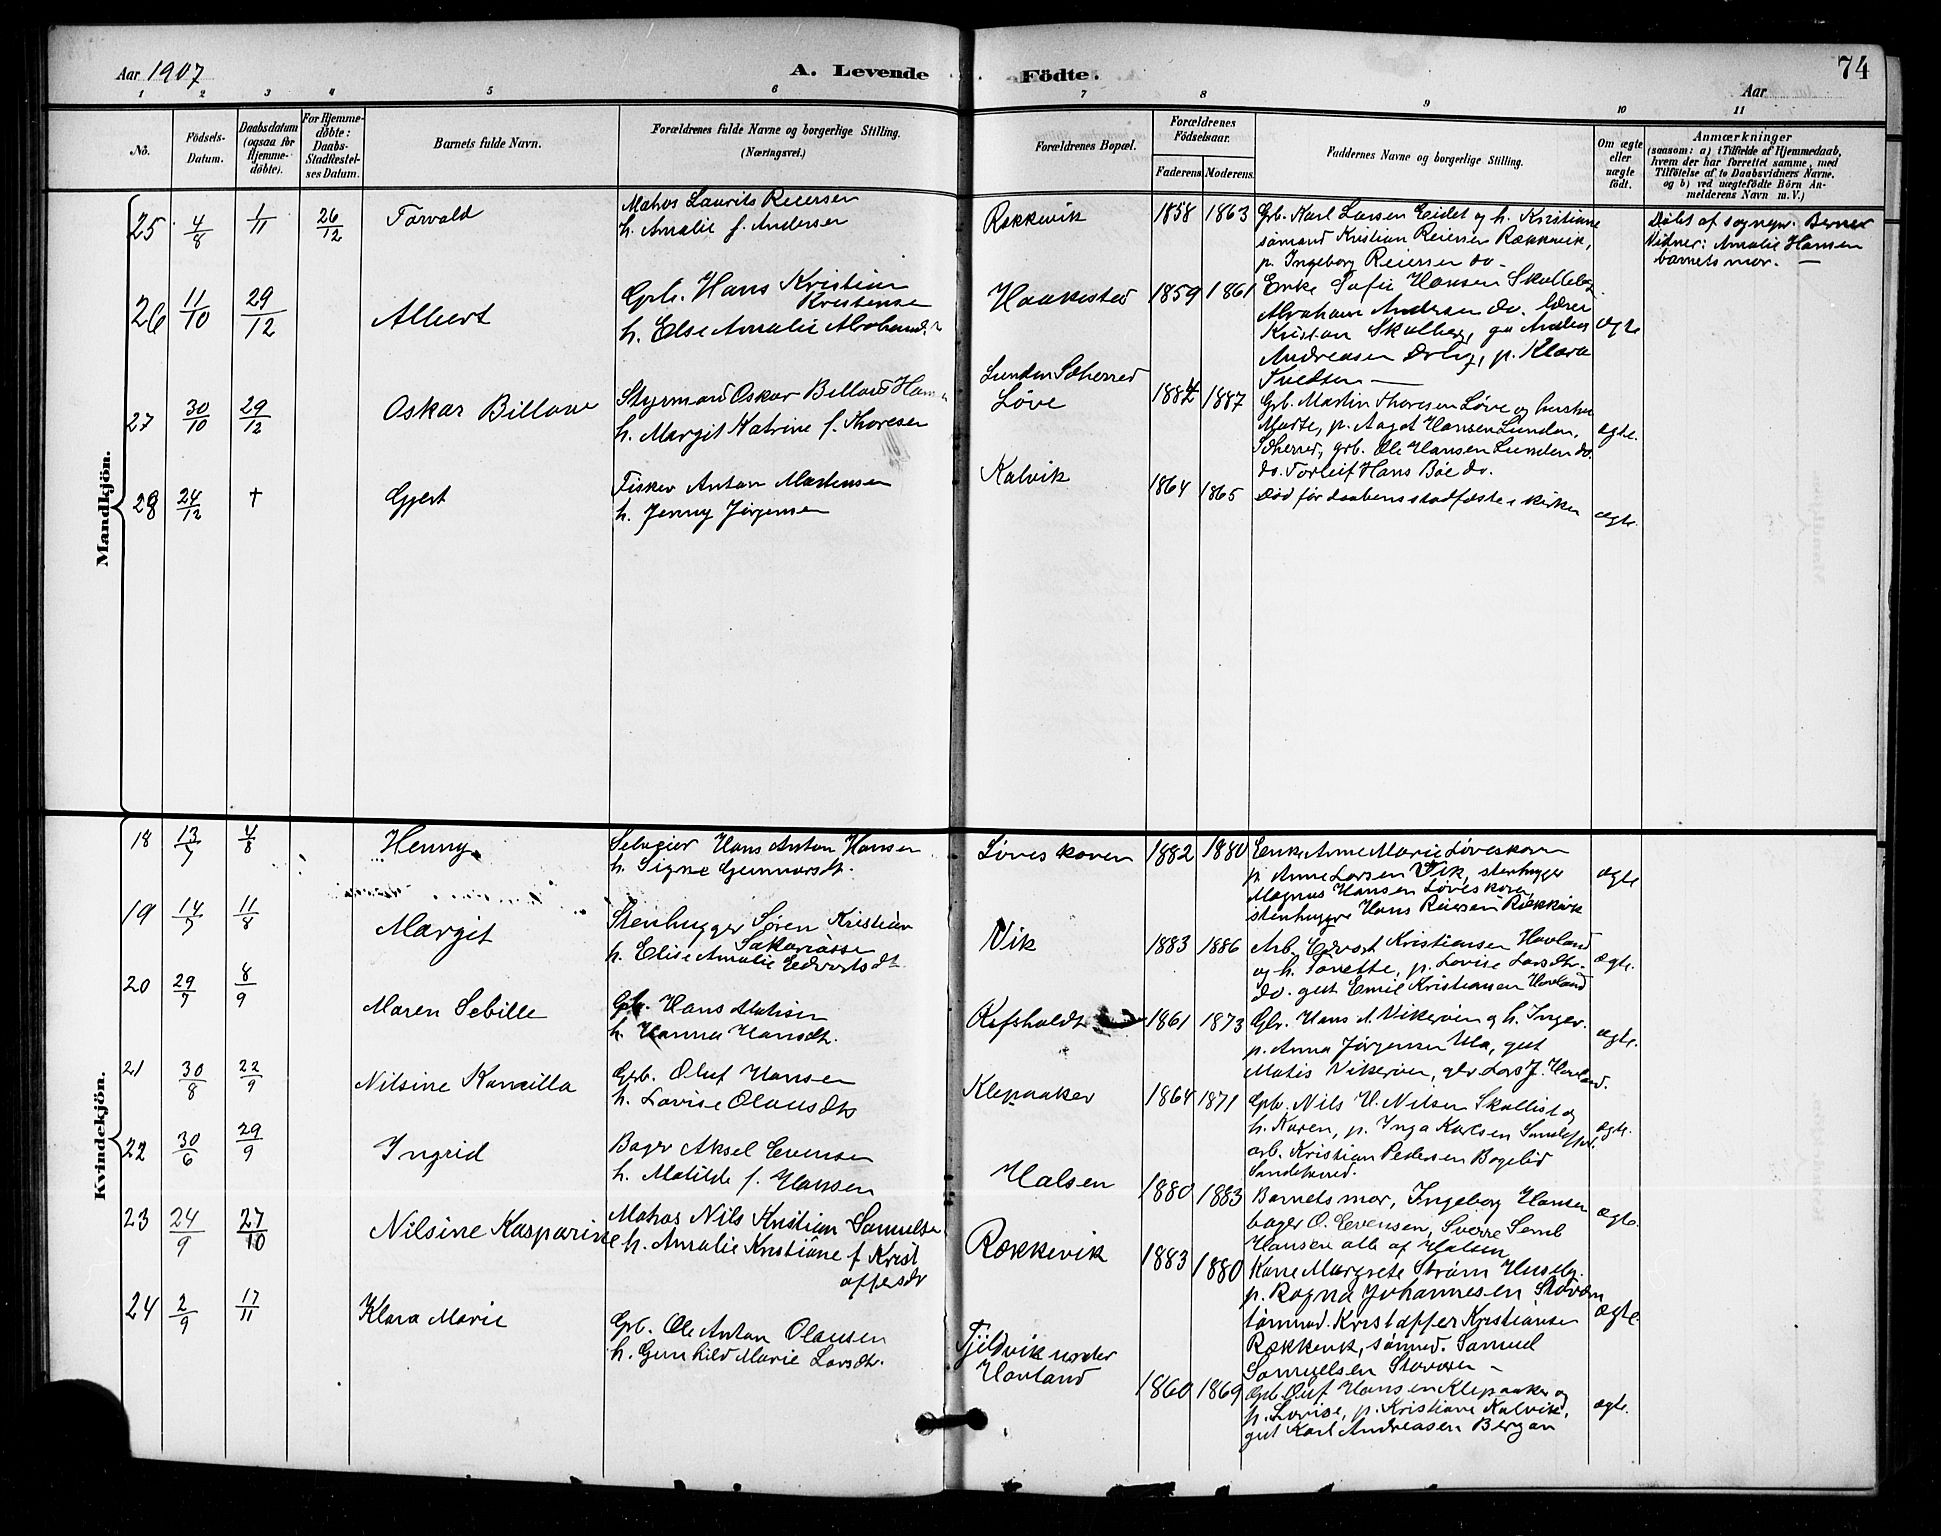 Aar 1907
A. Levende Födte.
74
Aar
1 2 3 4 5 6 7 8 9 10 11
No.
Födsels-
Datum.
Daabsdatum
(ogsaa for
Hjemme-
döbte).
For Hjemme-
döbte:
Daabs-
Stadfæstel-
ses Datum.
Barnets fulde Navn.
Forældrenes fulde Navne og borgerlige Stilling.
(Næringsvei.)
Forældrenes Bopæl.
Forældrenes
Födselsaar.
Faderens. Moderens.
Faddernes Navne og borgerlige Stilling.
Om ægte
eller
uægte
födt.
Anmærkninger
(saasom: a) i Tilfælde af Hjemmedaab,
hvem der har forrettet samme, med
Tilföielse af to Daabsvidners Navne.
og b) ved uægtefödte Börn An-
melderens Navn m. V.)
Mandkjön.
25 4/8 1/11 26/12 Torvald
Matros Laurits Reiersen
h. Amalie f. Andersen
Rækkevik 1858 1863
Grb. Karl Larsen Eidet og h. Kristiane
sømand Kristian Reiersen Rækkevik,
p. Ingeborg Reiersen do.
Døbt af sognepr. Berner
Vidner: Amalie Hansen
barnets mor. —
26 11/10 29/12 Albert
Grb. Hans Kristian
Kristensen
h. Else Amalie
Haakestad 1859 1861
Enke Sofie Hansen Skalleberg
Abraham Andersen do. lærer
Kristian Skalberg, g. Anders
Andreasen p. Klara
Tvedten —
ægte
27 30/10 29/12 Oskar Billane
Styrmand Oskar Billane
h. Margit Katrine f. Thoresen
Lunden Sdherred
Løve
1884 1887
Grb. Martin Thoresen Løve og hustru
Marte, p. Aagot Hansen Lunden,
Sdherred, grb. Ole Hansen Lunden do.
do. Torleif Hans Bøe do.
ægte.
28 24/12 † Gjert
Fisker Anton Martensen
h. Jenny Jørgensen
Kalvik 1864 1865
Død før daabens stadfæste i kirken
ægte.
Kvindekjön.
18 13/7 4/8 Henny
Selveier Hans Anton Hansen
h. Signe Gunnarsdt.
Løveskoven 1882 1880
Enke Anne Marie Løveskoven
p. Anne Larsen Vik, stenhugger
Magnus Hansen Løveskoven,
stenhugger Hans Reiersen Rækkevik
ægte
19 14/7 11/8 Margit
Stenhugger Søren Kristian
Sakariasse
h. Elise Amalie Edvartsdt.
Vik 1883 1886
Arb. Edvart Kristiansen Hovland
og h. Tonette, p. Lovise Larsdtr.
do. gut Emil Kristiansen Hovland
ægte.
20 29/7 8/9 Maren Sebille
Grb. Hans Matisen
h. Hanna Hansdt.
Refsholdt 1861 1873
Gbr. Hans A. Vikerøen og h. Inger.
p. Anna Jørgensen Ula, gut
Matis Vikerøen, gbr. Lars J. Hovland.
ægte.
21 30/8 22/9 Nilsine Kamilla
Grb. Oluf Hansen
h. Lovise Olausdt
Klepaaker 1864 1871
Grb. Nils H. Nilsen Skallist og
h. Karen, p. Inga Karlsen
arb. Kristian Pedersen Bogelid
Sandeherred.
ægte.
22 30/6 29/9 Ingrid
Bager Aksel Evensen
h. Matilde f. Hansen
Halsen 1880 1883
Barnets mor, Ingeborg Hansen
bager O. Evensen, Sverre Semb
Hansen alle af Halsen
ægte.
23 24/9 27/10 Nilsine Kasparine
Matros Nils Kristian Samuelse
h. Amalie Kristiane f. Krist
offersdt
Rækkevik 1883 1880
Kone Margrete Strøm Huseby.
p. Ragna Johannesen Stavern
sømand. Kristoffer Kristiansen
Rækkevik, sømd. Samuel
Samuelsen Stavern —
ægte.
24 2/9 17/11 Klara Marie
Grb. Ole Anton Olausen
h. Gunhild Marie Larsdt.
Tjeldvik under
Hovland
1860 1869
Grb. Oluf Hansen Klepaaker og
h. Lovise, p. Kristiane Kalvik,
gut Karl Andreasen Bergan
ægte.